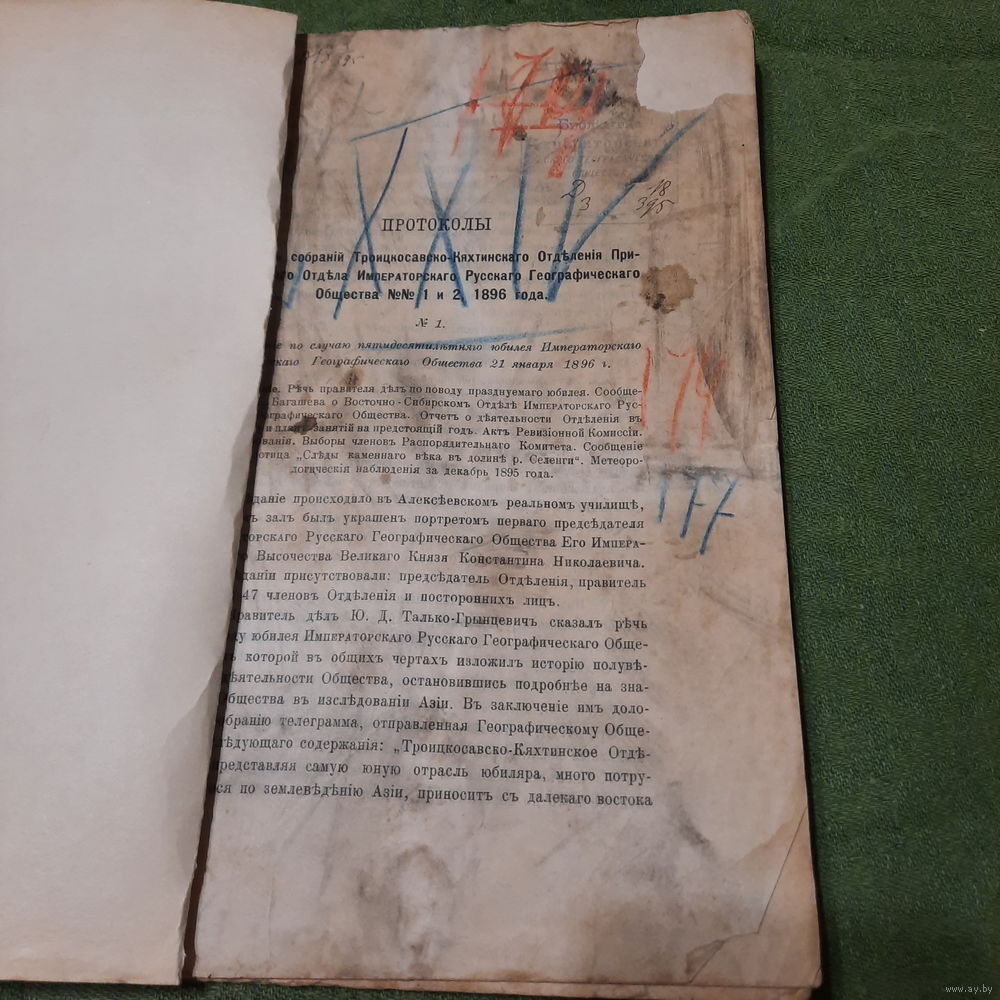 ПРОТОКОЛЫ
собраній Троицкосавско-Кяхтинскаго Отдѣленія При-
го Отдѣла Императорскаго Русскаго Географическаго
Общества №№ 1 и 2 1896 года.
№ 1.
по случаю пятидесятилѣтняго юбилея Императорскаго
скаго Географическаго Общества 21 января 1896 г.
Рѣчь правителя дѣлъ по поводу празднуемаго юбилея. Сообще-
Багашева о Восточно-Сибирскомъ Отдѣлѣ Императорскаго Рус-
ографическаго Общества. Отчетъ о дѣятельности Отдѣленія въ
и планъ занятій на предстоящій годъ. Актъ Ревизіонной Комиссіи.
ованія. Выборы членовъ Распорядительнаго Комитета. Сообщеніе
„Слѣды каменнаго вѣка въ долинѣ р. Селенги“. Метеоро-
логическія наблюденія за декабрь 1895 года.
даніе происходило въ Алексѣевскомъ реальномъ училищѣ,
ъ залъ былъ украшенъ портретомъ перваго предсѣдателя
торскаго Русскаго Географическаго Общества Его Импера-
о Высочества Великаго Князя Константина Николаевича.
даніи присутствовали: предсѣдатель Отдѣленія, правитель
47 членовъ Отдѣленія и постороннихъ лицъ.
равитель дѣлъ Ю. Д. Талько-Грынцевичъ сказалъ рѣчь
у юбилея Императорскаго Русскаго Географическаго Обще-
ъ которой въ общихъ чертахъ изложилъ исторію полувѣ-
дѣятельности Общества, остановившись подробнѣе на зна-
бщества въ изслѣдованіи Азіи. Въ заключеніе имъ доло-
бранію телеграмма, отправленная Географическому Обще-
лѣдующаго содержанія: „Троицкосавско-Кяхтинское Отдѣ-
редставляя самую юную отрасль юбиляра, много потру-
ся по землевѣдѣнію Азіи, приноситъ съ далекаго востока
XXIV
174
177
www.ay.by